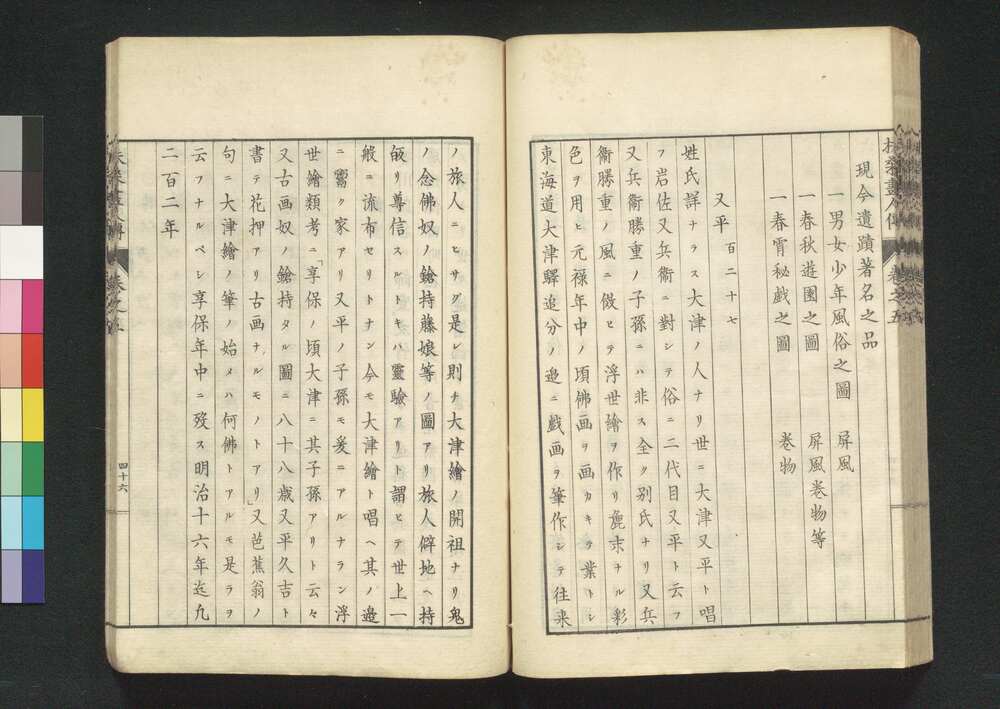 扶桑畫人傳 巻之五
現今遺蹟著名之品
一男女少年風俗之圖 屏風
一春秋遊園之圖 屏風巻物等
一春宵秘戯之圖 巻物
又平 百二十七
姓氏詳ナラス大津ノ人ナリ世ニ大津又平ト唱
フ岩佐又兵衞ニ對シテ俗ニ二代目又平ト云フ
又兵衞勝重ノ子孫ニハ非ス全ク别氏ナリ又兵
衞勝重ノ風ニ傚ヒテ浮世繪ヲ作リ麁末ナル彩
色ヲ用ヒ元禄年中ノ頃佛画ヲ画カキヲ業トシ
東海道大津驛追分ノ邉ニ戯画ヲ筆作シテ往来
ノ旅人ニヒサグ是レ則チ大津繪ノ開祖ナリ鬼
ノ念佛奴ノ鎗持藤娘等ノ圖アリ旅人僻地ヘ持
皈リ尊信スルトキハ靈驗アリト謂ヒテ世上一
般ニ流布セリトナン今モ大津繪ト唱ヘ其ノ邉
ニ鬻ク家アリ又平ノ子孫モ爰ニアルナラン浮
世繪類考ニ「享保ノ頃大津ニ其子孫アリト云々
又古画奴ノ鎗持タル圖ニ八十八歳又平久吉ト
書テ花押アリ古画ナルモノトアリ」又芭蕉翁ノ
句ニ大津繪ノ筆ノ始メハ何佛トアルモ是ラヲ
云フナルベシ享保年中ニ歿ス明治十六年迄九
二百二年
扶桑畫人傳 巻之五
四十六